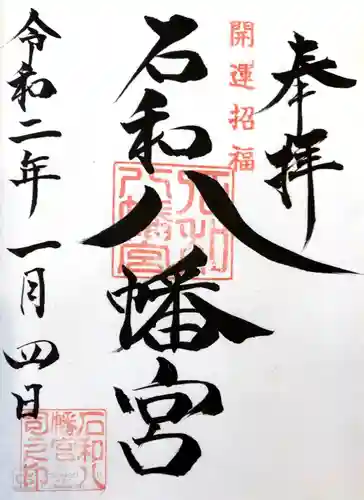 奉拝
開運招福
石和八幡宮
石和八幡宮
令和二年一月四日
石和八幡宮司之印